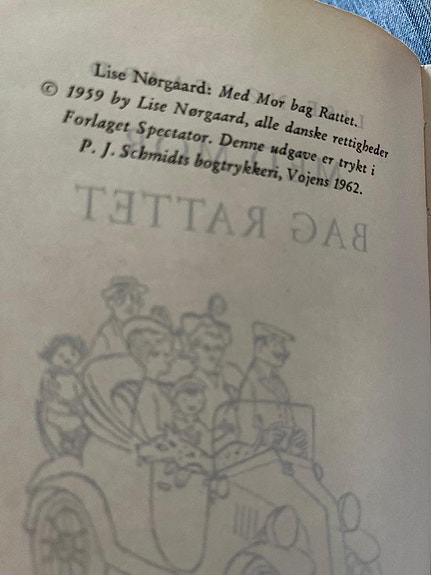 Lise Nørgaard: Med Mor bag Rattet.
© 1959 by Lise Nørgaard, alle danske rettigheder
Forlaget Spectator. Denne udgave er trykt i
P. J. Schmidts bogtrykkeri, Vojens 1962.
BAG RATTET